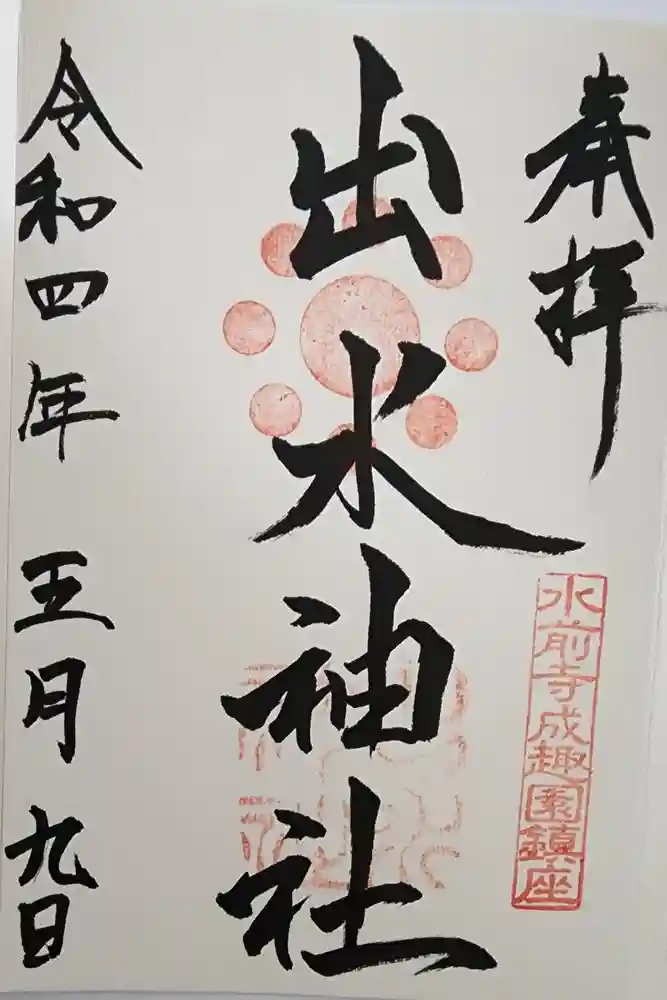 奉拝
水前寺成趣園鎮座
出水神社
令和四年 五月 九日